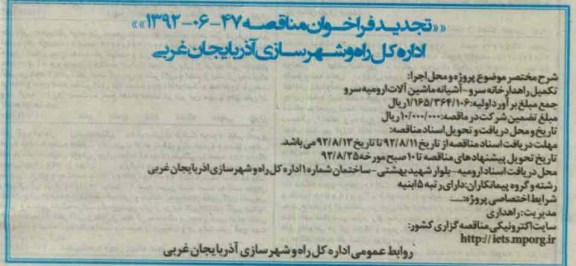 ««تجدید فراخوان مناقصه ۴۷-۰۶-۱۳۹۲»»
اداره کل راه و شهرسازی آذربایجان غربی
شرح مختصر موضوع پروژه و محل اجرا:
تکمیل راهدارخانه سرو - آشیانه ماشین آلات ارومیه سرو
جمع مبلغ برآورد اولیه: ۱/۱۶۵/۳۶۴/۱۰۶ ریال
مبلغ تضمین شرکت در مناقصه: ۱۰/۰۰۰/۰۰۰ ریال
تاریخ و محل دریافت و تحویل اسناد مناقصه:
مهلت دریافت اسناد مناقصه از تاریخ ۹۲/۸/۱۱ تا تاریخ ۹۲/۸/۱۳ می باشد.
تاریخ تحویل پیشنهادهای مناقصه تا ۱۰ صبح مورخه ۹۲/۸/۲۵
محل دریافت اسناد ارومیه - بلوار شهید بهشتی - ساختمان شماره ۱ اداره کل راه و شهرسازی آذربایجان غربی
رشته و گروه پیمانکاران: دارای رتبه ۵ ابنیه
شرایط اختصاصی پروژه:....
مدیریت: راهداری
سایت الکترونیکی مناقصه گزاری کشور:
http://iets.mporg.ir
روابط عمومی اداره کل راه و شهرسازی آذربایجان غربی